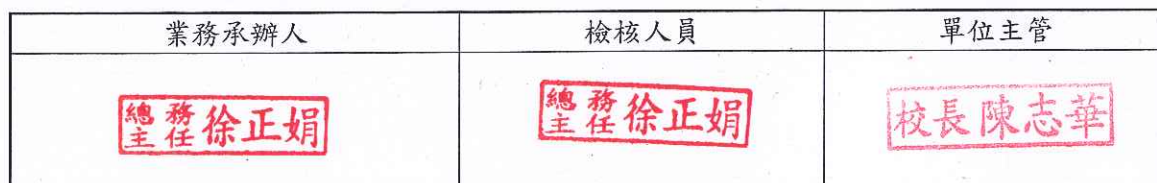 業務承辦人
檢核人員
單位主管
總務主任 徐正娟
總務主任 徐正娟
校長 陳志華